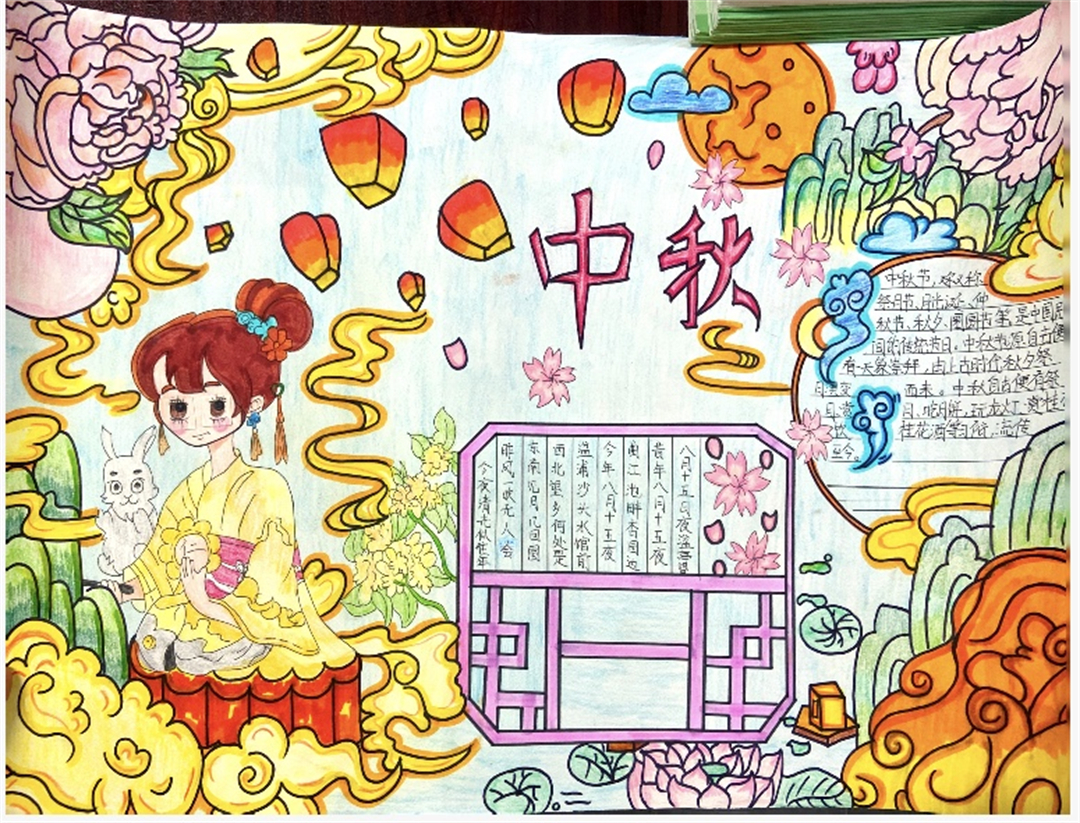 中秋
中秋节,又称
祭月节、月光诞、仲
秋节、秋夕、团圆节等,是中国民
间的传统节日。中秋节源自
天象崇拜,由上古时代秋夕祭
月演变而来。中秋自古便有祭
月、赏月、吃月饼、玩花灯、赏桂
饮桂花酒等习俗,流传
至今。
八月十五日夜湓
昔年八月十五夜
曲江池畔杏园边
今年八月十五夜
湓浦沙头水馆前
西北望乡何处是
东南见月几回圆
昨风一吹无人会
今夜清光似往年